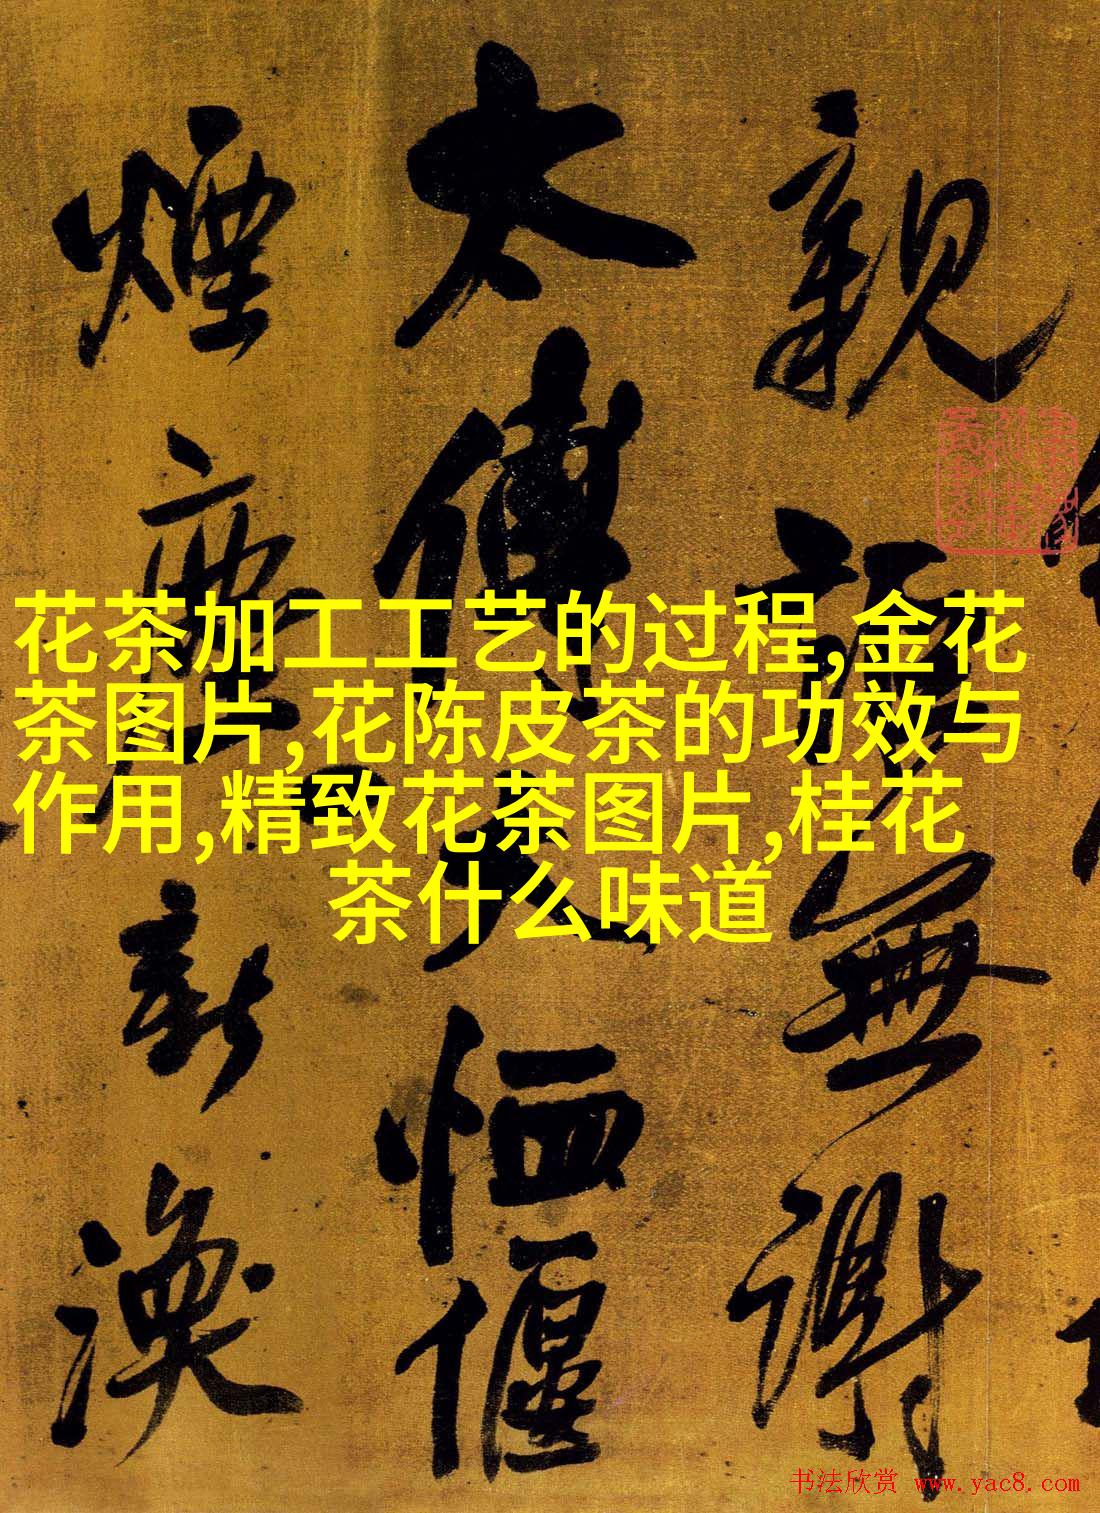 親
無謝
太傅
恤偃
煙塵
新渙
花茶加工工艺的过程,金花
茶图片,花陈皮茶的功效与
作用,精致花茶图片,桂花
茶什么味道
书法欣赏 www.yac8.com